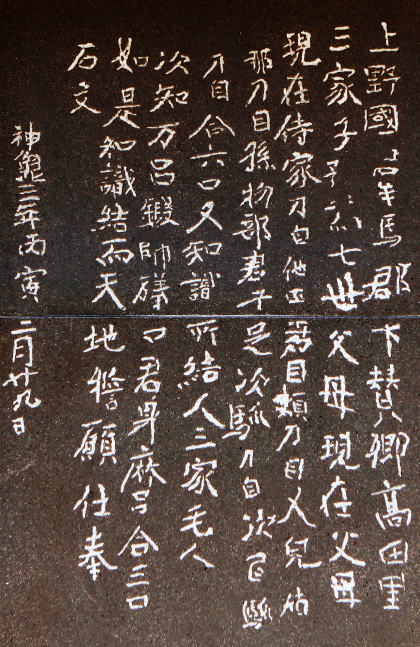 上野國羣馬郡下賛郷高田里
三家子孫為七世父母現在父母
現在侍家刀自他田君目頬刀自又兒加
那刀自孫物部君午足次馴刀自次乙馴
刀自合六口又知識所結人三家毛人
次知万呂鍛師礒マ君身麻呂合三口
如是知識結而天地誓願仕奉
石文
神亀三年丙寅二月廿九日